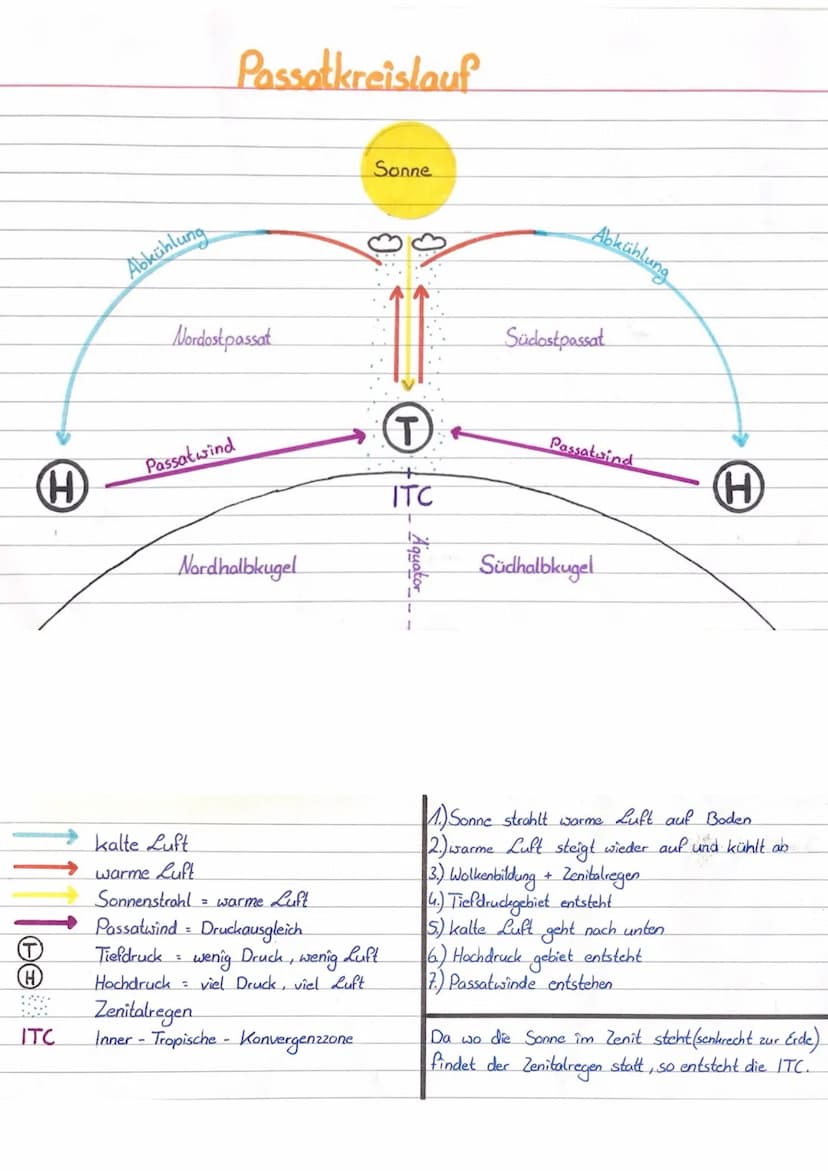 Passatkreislauf
Sonne
Abkühlung
Abkühlung
Nordostpassat
Südostpassat
T
Passatwind
Passatwind
H
H
ITC
Äquator
Nordhalbkugel
Südhalbkugel
kalte Luft
warme Luft
Sonnenstrahl = warme Luft
Passatwind = Druckausgleich
T Tiefdruck = wenig Druck, wenig Luft
H Hochdruck = viel Druck, viel Luft
Zenitalregen
ITC Inner - Tropische - Konvergenzzone
1.) Sonne strahlt warme Luft auf Boden
2.) warme Luft steigt wieder auf und kühlt ab
3.) Wolkenbildung + Zenitalregen
4.) Tiefdruckgebiet entsteht
5.) kalte Luft geht nach unten
6.) Hochdruck gebiet entsteht
7.) Passatwinde entstehen
Da wo die Sonne im Zenit steht (senkrecht zur Erde)
findet der Zenitalregen statt, so entsteht die ITC.